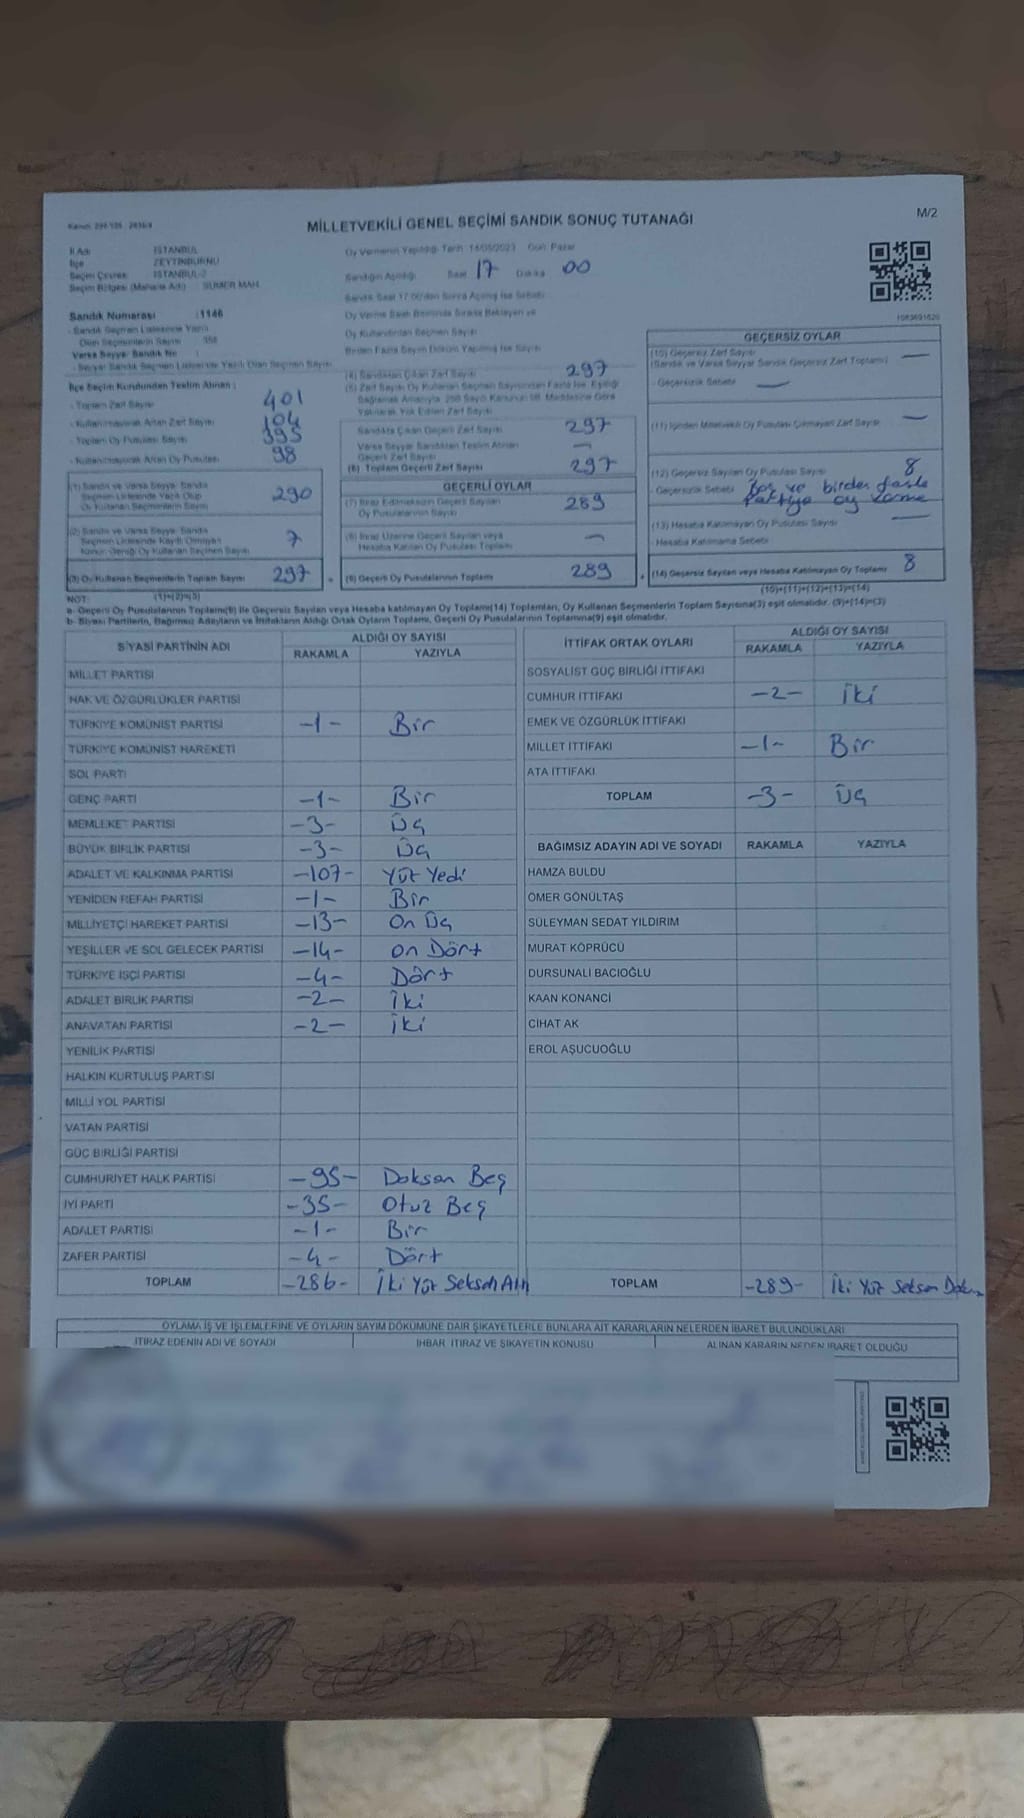 MİLLETVEKİLİ GENEL SEÇİMİ SANDIK SONUÇ TUTANAĞI
M/2
İl Adı : İSTANBUL
İlçe : ZEYTİNBURNU
Seçim Çevresi : İSTANBUL-2
Seçim Bölgesi (Mahalle Adı) : SÜMER MAH.
Oy Vermenin Yapıldığı Tarih: 14/05/2023 Gün: Pazar
Sandığın Açıldığı Saat 17 Dakika 00
Sandık Saat 17:00'den Sonra Açılmış İse Sebebi
Sandık Numarası : 1146
Sandık Seçmen Listesinde Yazılı
Olan Seçmenlerin Sayısı
Varsa Seyyar Sandık No :
Oy Kullandırılan Seçmen Sayısı
Birden Fazla Sayım Döküm Yapılmış İse Sayısı
(4) Sandıktan Çıkan Zarf Sayısı 297
İlçe Seçim Kurulundan Teslim Alınan :
- Toplam Zarf Sayısı 401
- Kullanılmayarak Artan Zarf Sayısı 104
- Toplam Oy Pusulası Sayısı 395
- Kullanılmayarak Artan Oy Pusulası 98
(1) Sandık ve Varsa Seyyar Sandık
Seçmen Listesinde Yazılı Olup
Oy Kullanan Seçmenlerin Sayısı 290
(2) Sandık ve Varsa Seyyar Sandık
Seçmen Listesinde Kayıtlı Olmayan
7
(3) Oy Kullanan Seçmenlerin Toplam Sayısı 297
(1)+(2)=(3)
Sandıkta Çıkan Geçerli Zarf Sayısı 297
Varsa Seyyar Sandıktan Teslim Alınan
Geçerli Zarf Sayısı —
(6) Toplam Geçerli Zarf Sayısı 297
GEÇERLİ OYLAR
(7) İtiraz Edilmeksizin Geçerli Sayılan
Oy Pusulalarının Sayısı 289
(8) İtiraz Üzerine Geçerli Sayılan veya
Hesaba Katılan Oy Pusulası Toplamı —
(9) Geçerli Oy Pusulalarının Toplamı 289
GEÇERSİZ OYLAR
(10) Geçersiz Zarf Sayısı —
(Sandık ve Varsa Seyyar Sandık Geçersiz Zarf Toplamı)
- Geçersizlik Sebebi —
(11) İçinden Milletvekili Oy Pusulası Çıkmayan Zarf Sayısı —
(12) Geçersiz Sayılan Oy Pusulası Sayısı 8
- Geçersizlik Sebebi Boş ve birden fazla
Partiye oy verme
(13) Hesaba Katılmayan Oy Pusulası Sayısı —
- Hesaba Katılmama Sebebi
(14) Geçersiz Sayılan veya Hesaba Katılmayan Oy Toplamı 8
(10)+(11)+(12)+(13)=(14)
NOT:
a- Geçerli Oy Pusulalarının Toplamı(9) ile Geçersiz Sayılan veya Hesaba katılmayan Oy Toplamı(14) Toplamları, Oy Kullanan Seçmenlerin Toplam Sayısına(3) eşit olmalıdır. (9)+(14)=(3)
b- Siyasi Partilerin, Bağımsız Adayların ve İttifakların Aldığı Ortak Oyların Toplamı, Geçerli Oy Pusulalarının Toplamına(9) eşit olmalıdır.
SİYASİ PARTİNİN ADI
ALDIĞI OY SAYISI
RAKAMLA YAZIYLA
MİLLET PARTİSİ
HAK VE ÖZGÜRLÜKLER PARTİSİ
TÜRKİYE KOMÜNİST PARTİSİ -1- Bir
TÜRKİYE KOMÜNİST HAREKETİ
SOL PARTİ
GENÇ PARTİ -1- Bir
MEMLEKET PARTİSİ -3- Üç
BÜYÜK BİRLİK PARTİSİ -3- Üç
ADALET VE KALKINMA PARTİSİ -107- Yüz Yedi
YENİDEN REFAH PARTİSİ -1- Bir
MİLLİYETÇİ HAREKET PARTİSİ -13- On Üç
YEŞİLLER VE SOL GELECEK PARTİSİ -14- on Dört
TÜRKİYE İŞÇİ PARTİSİ -4- Dört
ADALET BİRLİK PARTİSİ -2- İki
ANAVATAN PARTİSİ -2- İki
YENİLİK PARTİSİ
HALKIN KURTULUŞ PARTİSİ
MİLLİ YOL PARTİSİ
VATAN PARTİSİ
GÜÇ BİRLİĞİ PARTİSİ
CUMHURİYET HALK PARTİSİ -95- Doksan Beş
İYİ PARTİ -35- Otuz Beş
ADALET PARTİSİ -1- Bir
ZAFER PARTİSİ -4- Dört
TOPLAM -286- İki Yüz Seksen Altı
İTTİFAK ORTAK OYLARI
ALDIĞI OY SAYISI
RAKAMLA YAZIYLA
SOSYALİST GÜÇ BİRLİĞİ İTTİFAKI
CUMHUR İTTİFAKI -2- İki
EMEK VE ÖZGÜRLÜK İTTİFAKI
MİLLET İTTİFAKI -1- Bir
ATA İTTİFAKI
TOPLAM -3- Üç
BAĞIMSIZ ADAYIN ADI VE SOYADI RAKAMLA YAZIYLA
HAMZA BULDU
ÖMER GÖNÜLTAŞ
SÜLEYMAN SEDAT YILDIRIM
MURAT KÖPRÜCÜ
DURSUNALİ BACIOĞLU
KAAN KONANCİ
CİHAT AK
EROL AŞUCUOĞLU
TOPLAM -289- İki Yüz Seksen Dokuz
OYLAMA İŞ VE İŞLEMLERİNE VE OYLARIN SAYIM DÖKÜMÜNE DAİR ŞİKAYETLERLE BUNLARA AİT KARARLARIN NELERDEN İBARET BULUNDUKLARI
İTİRAZ EDENİN ADI VE SOYADI
İHBAR İTİRAZ VE ŞİKAYETİN KONUSU
ALINAN KARARIN NEDEN İBARET OLDUĞU